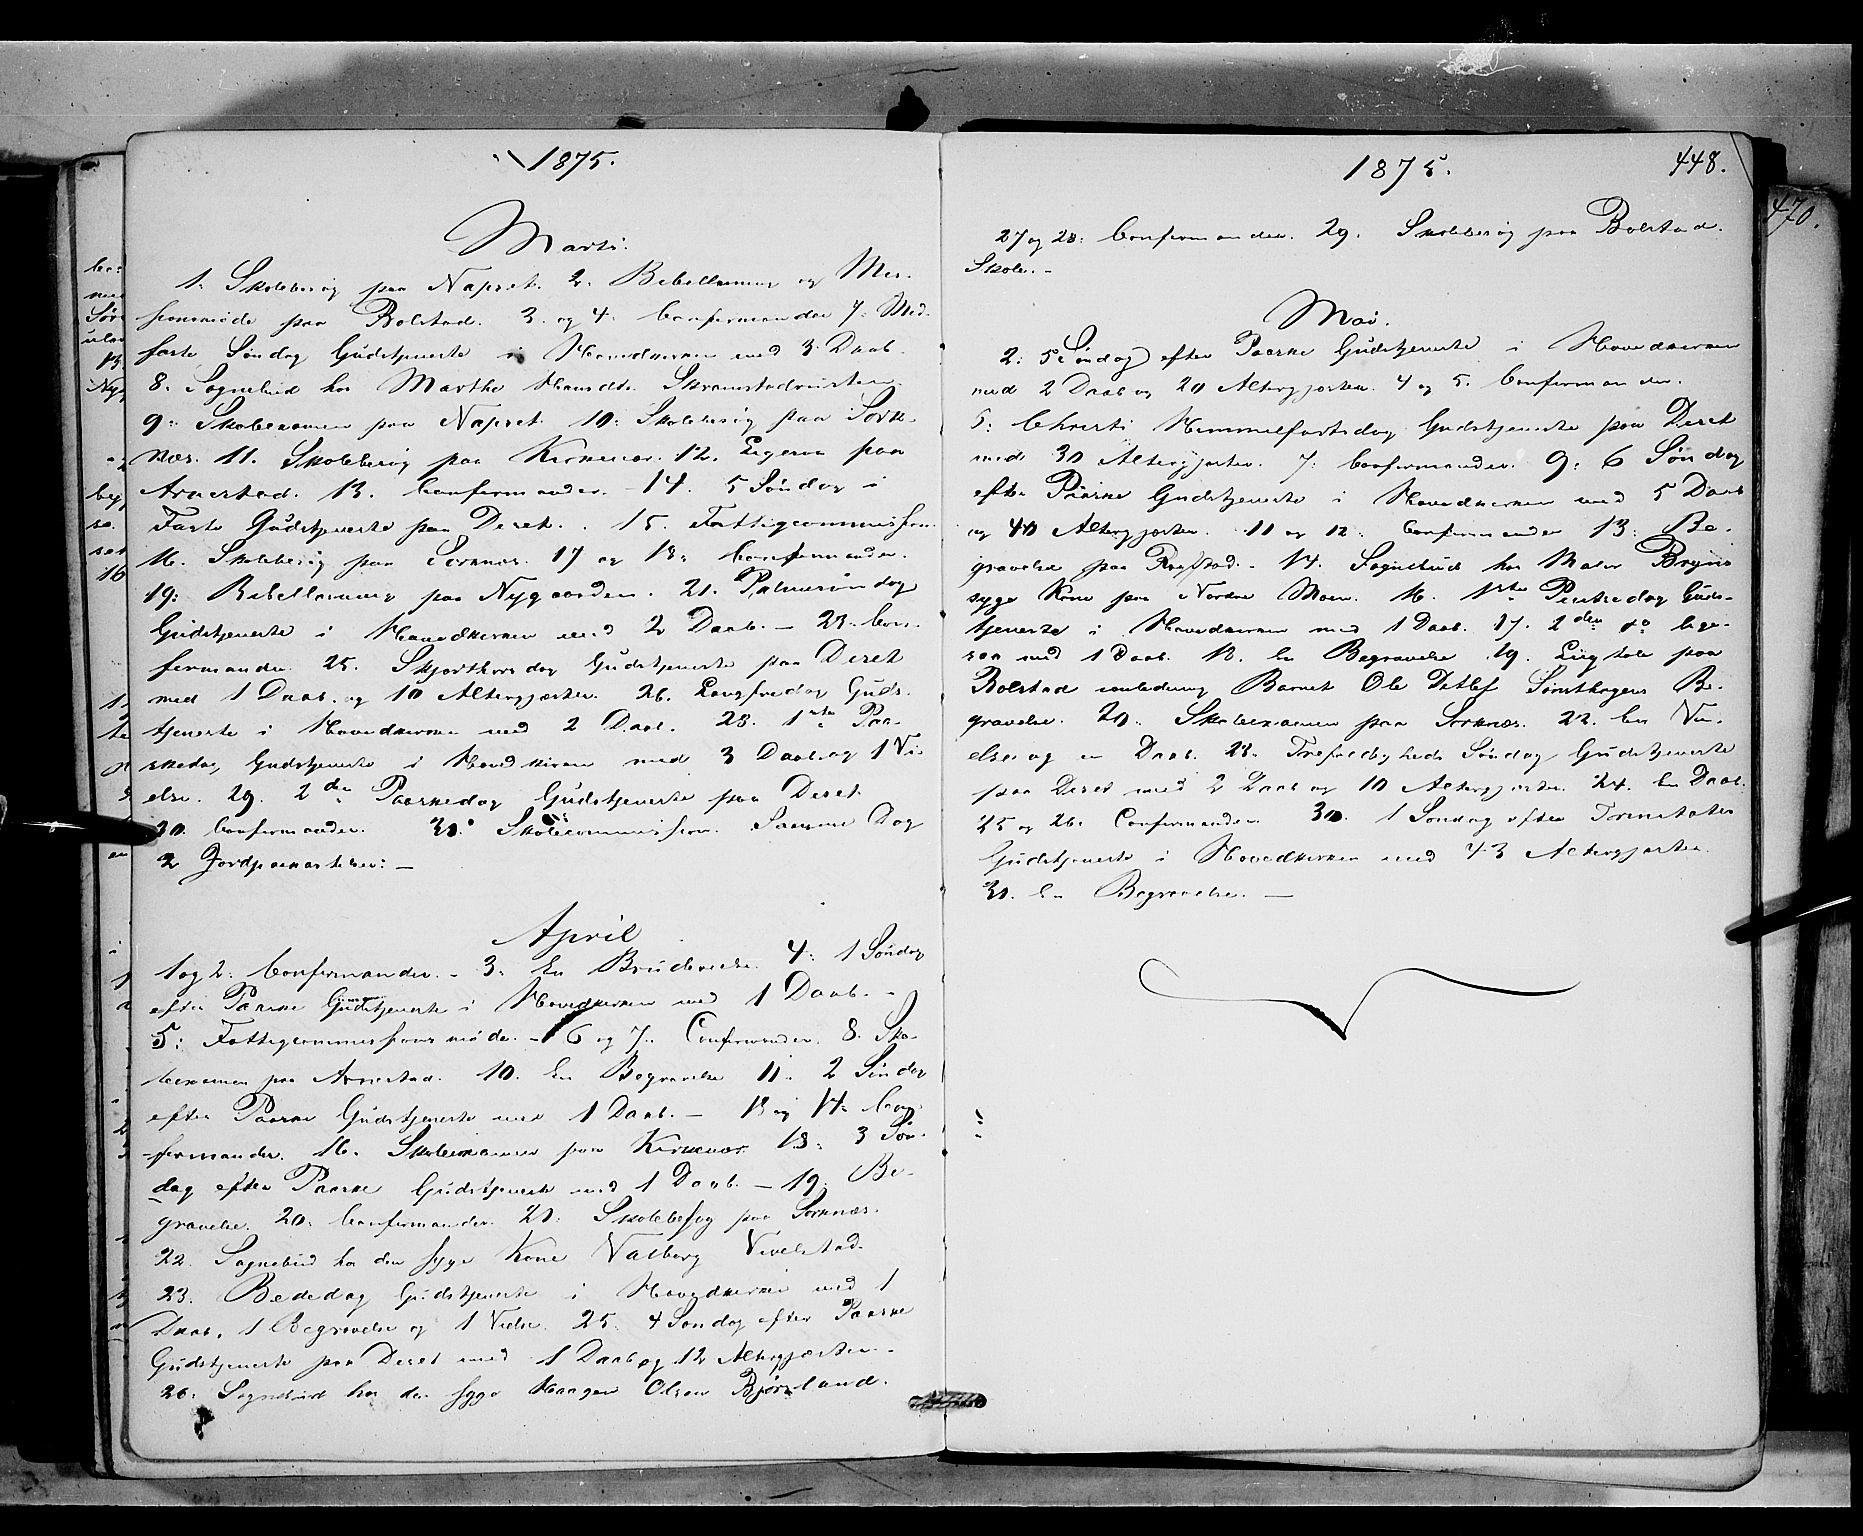 1875.
Marts.
1. Skolebesøg paa Napset. 2. Bibellæsning og Mis-
sionsmøde paa Bolstad. 3. og 4. Confirmander 7. Mid-
faste Søndag Gudstjeneste i Hovedkirken med 3 Daab.
8. Sognebud hos Marthe Hansdtr.
9. Skoleexamen paa Napset. 10. Skolebesøg paa Sork-
næs. 11. Skolebesøg paa Kirkenær. 12. Ligesaa paa
Arnestad. 13. Confirmander. 14. 5 Søndag i
Faste Gudstjeneste paa Deset. 15. Fattigcommission
16. Skolebesøg paa Sorknæs. 17 og 18. Confirmander.
19. Bibellæsning paa Nygaarden. 21. Palmesøndag
Gudstjeneste i Hovedkirken med 2 Daab. — 23. Con-
firmander. 25. Skjærthorsdag Gudstjeneste paa Deset
med 1 Daab og 10 Altergjæster. 26. Langfredag Guds-
tjeneste i Hovedkirken med 2 Daab. 28. 1ste Paa-
skedag, Gudstjeneste i Hovedkirken med 3 Daab og 1 Vi-
else. 29. 2den Paaskedag Gudstjeneste paa Deset
30. Confirmander. Skolecommission. Samme Dag
2 Jordpaakastelser: —
April
1 og 2. Confirmander. — 3. En Brudevielse. 4. 1 Søndag
efter Paaske Gudstjeneste i Hovedkirken med 1 Daab. —
5: Fattigcommissionsmøde. — 6 og 7. Confirmander. 8. Sko-
leexamen paa Arnestad. 10. En Begravelse 11. 2 Søndag
efter Paaske Gudstjeneste med 1 Daab. — 13 og 14. Con-
firmander. 16. Skoleexamen paa Kirkenær. 18. 3 Søn-
dag efter Paaske Gudstjeneste med 1 Daab. — 19. Be-
gravelse. 20. Confirmander. 21. Skolebesøg paa Sorknæs.
22. Sognebud hos den syge Kone Valborg Vevelstad.
23. Bededag Gudstjeneste i Hovedkirken med 1
Daab, 1 Begravelse og 1 Vielse. 25. 4 Søndag efter Paaske
Gudstjeneste paa Deset med 1 Daab og 12 Altergjæster. —
26. Sognebud hos den syge Haagen Olsen Bjørnland.
1875.
448.
470.
27 og 28. Confirmander. 29. Skolebesøg paa Bolstad
Skole. —
Mai.
2. 5 Søndag efter Paaske Gudstjeneste i Hovedkirken
med 2 Daab og 20 Altergjæster. 4 og 5. Confirmander.
6. Christi Himmelfartsdag Gudstjeneste paa Deset
med 30 Altergjæster. 7. Confirmander. 9. 6 Søndag
efter Paaske Gudstjeneste i Hovedkirken med 5 Daab
og 40 Altergjæster. 11 og 12. Confirmander 13. Be-
gravelse paa 14. Sognebud hos Maler Bryns
syge Kone paa Nordre Moen. 16. 1ste Pintsedag Guds-
tjeneste i Hovedkirken med 1 Daab. 17. 2den do lige-
saa med 1 Daab. 18. En Begravelse 19. Liigtale paa
Bolstad anledning Barnet Ole Detlef Be-
gravelse. 20. Skoleexamen paa Sorknæs. 22. En Vi-
else og en Daab. 23. Trefoldigheds Søndag Gudstjeneste
paa Deset med 2 Daab og 10 Altergjæster. 24. En Daab.
25 og 26. Confirmander 30. 1 Søndag efter Trinitatis
Gudstjeneste i Hovedkirken med 43 Altergjæster.
En Begravelse. —